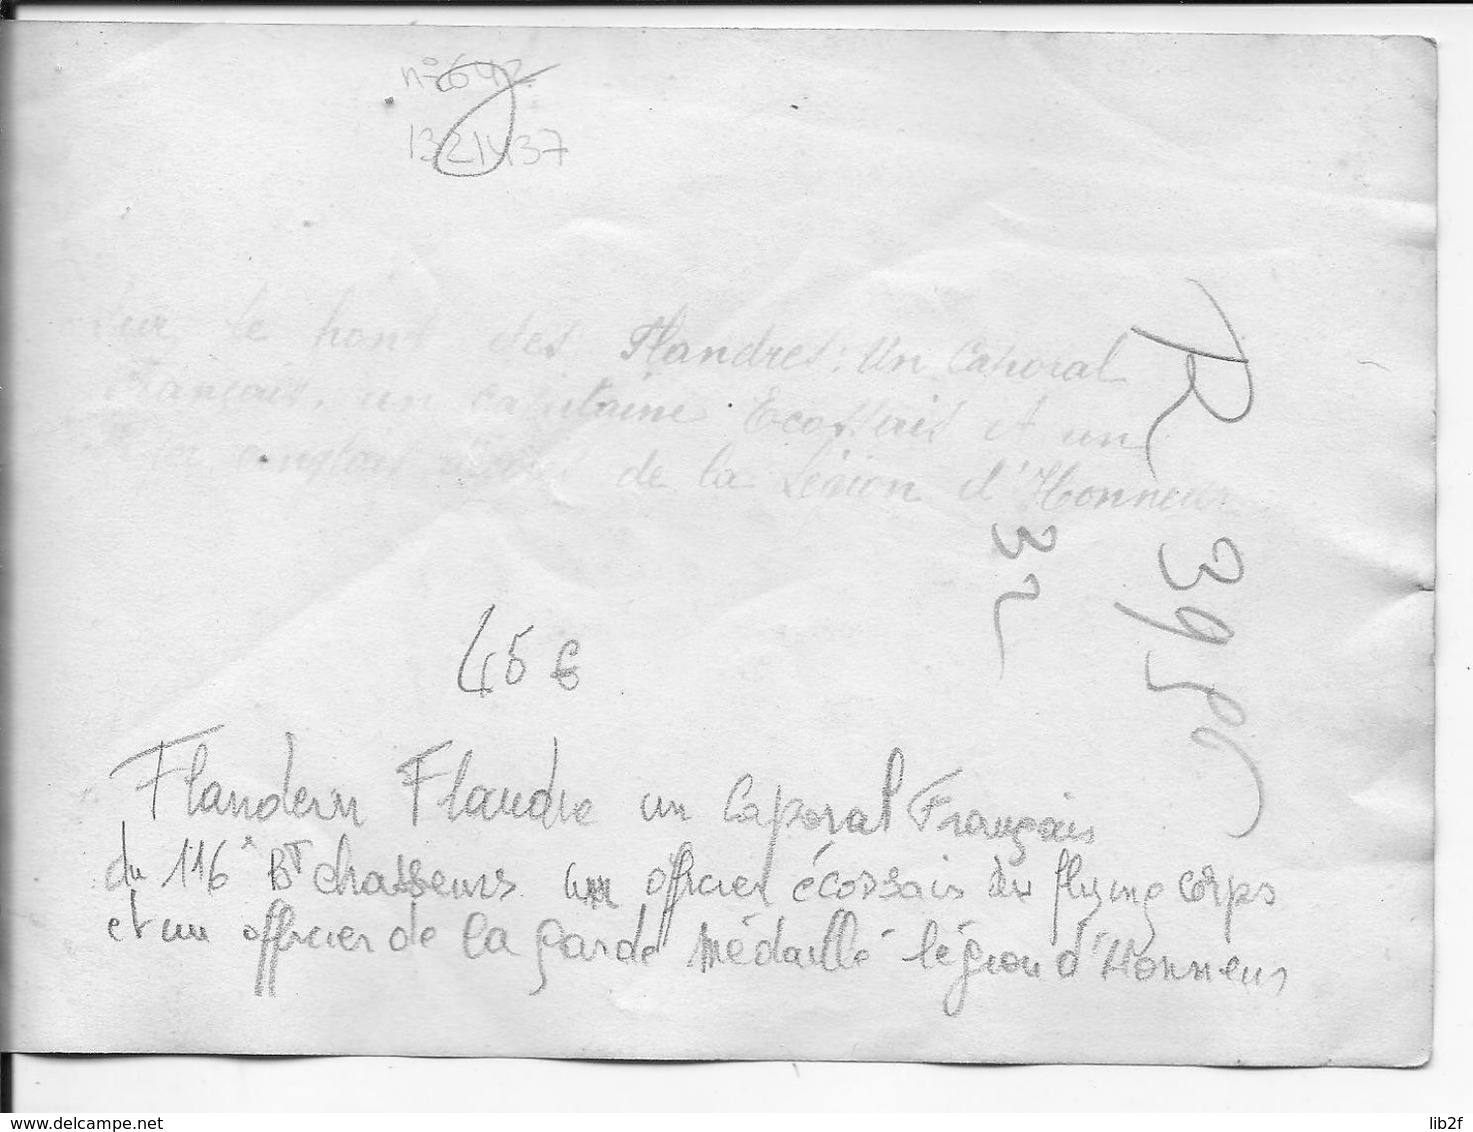 n° 642
1321437
Sur le front des Flandres: Un Caporal
Français, un capitaine Ecossais et un
anglais de la Légion d'Honneur
R 3956
32
45 €
Flandern Flandre un Caporal Français
du 116e Bt chasseurs un officier écossais du flying corps
et un officier de la garde Médaillé légion d'Honneur
www.delcampe.net
lib2f